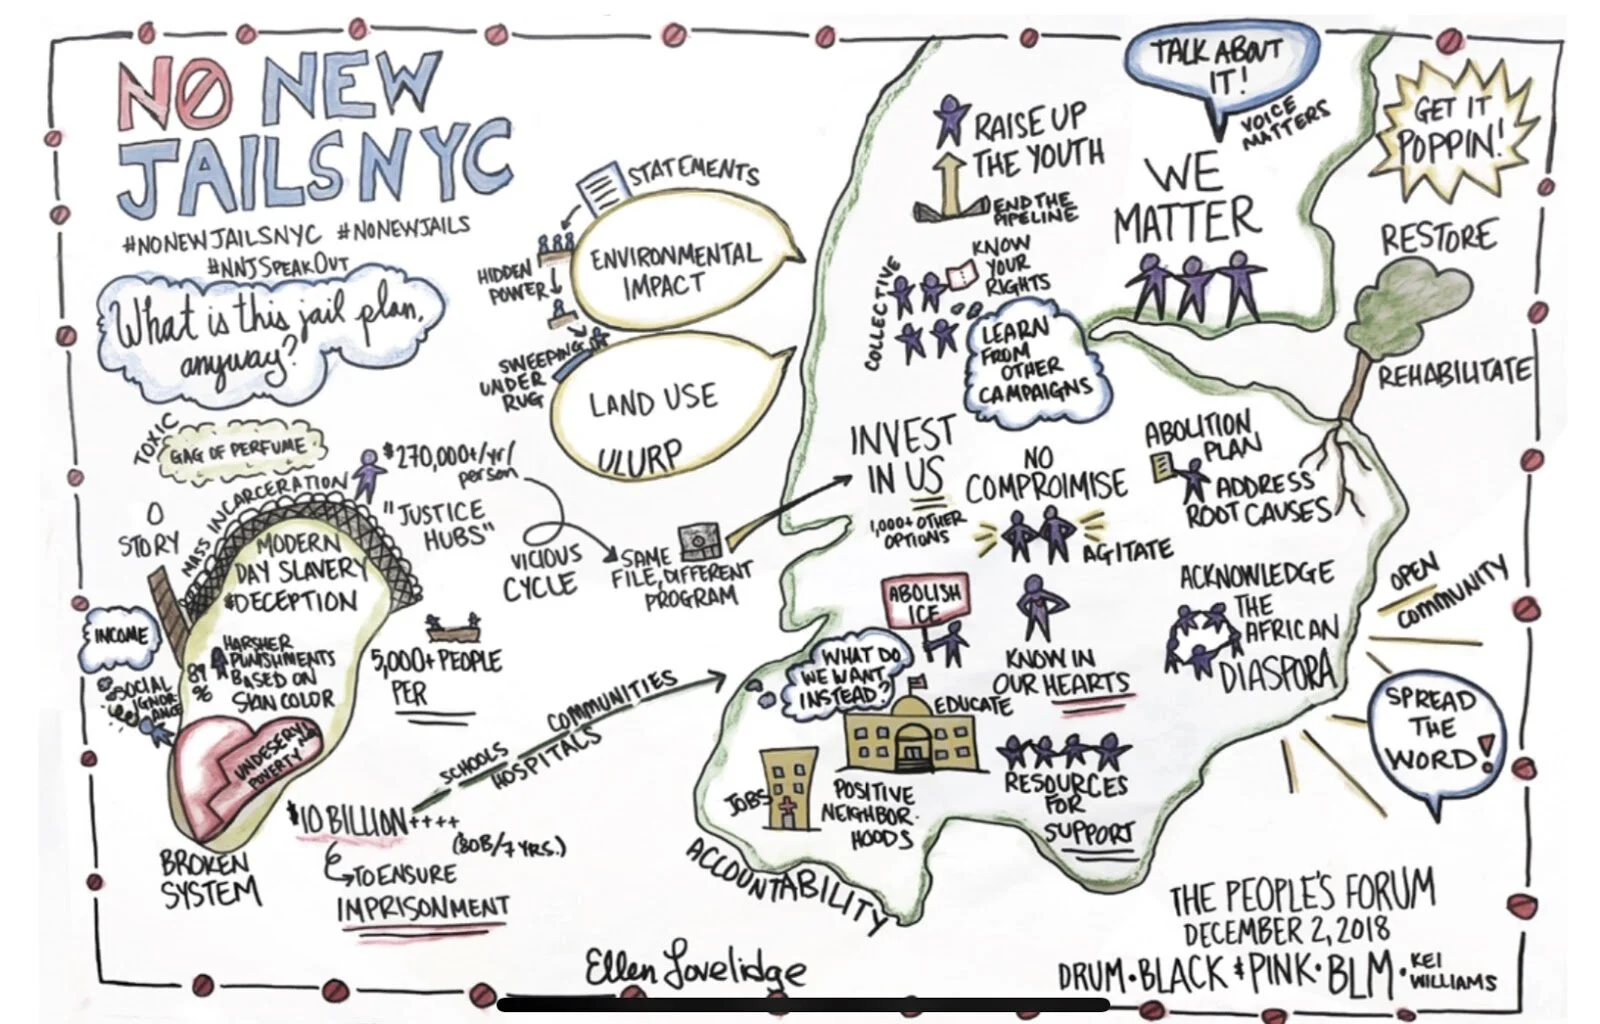 NO NEW
JAILS NYC
#NONEWJAILSNYC #NONEWJAILS
#NNJSPEAKOUT
What is this jail plan,
anyway?
STATEMENTS
HIDDEN
POWER
ENVIRONMENTAL
IMPACT
SWEEPING
UNDER
RUG
LAND USE
ULURP
TOXIC
GAG OF PERFUME
STORY
MASS INCARCERATION
$270,000+/yr/
person
"JUSTICE
HUBS"
VICIOUS
CYCLE
SAME
FILE, DIFFERENT
PROGRAM
MODERN
DAY SLAVERY
&DECEPTION
INCOME
SOCIAL
IGNOR-
ANCE
89
%
HARSHER
PUNISHMENTS
BASED ON
SKIN COLOR
5,000+ PEOPLE
PER
UNDESERVING
POVERTY
BROKEN
SYSTEM
$10 BILLION++++
(80B/7 YRS.)
TO ENSURE
IMPRISONMENT
SCHOOLS
HOSPITALS
COMMUNITIES
RAISE UP
THE YOUTH
END THE
PIPELINE
TALK ABOUT
IT!
VOICE
MATTERS
WE
MATTER
GET IT
POPPIN!
COLLECTIVE
KNOW
YOUR
RIGHTS
LEARN
FROM
OTHER
CAMPAIGNS
RESTORE
REHABILITATE
INVEST
IN US
1,000+ OTHER
OPTIONS
NO
COMPROIMISE
AGITATE
ABOLITION
PLAN
ADDRESS
ROOT CAUSES
ABOLISH
ICE
KNOW IN
OUR HEARTS
ACKNOWLEDGE
THE
AFRICAN
DIASPORA
OPEN
COMMUNITY
WHAT DO
WE WANT
INSTEAD?
EDUCATE
JOBS
POSITIVE
NEIGHBOR-
HOODS
RESOURCES
FOR
SUPPORT
SPREAD
THE
WORD!
ACCOUNTABILITY
THE PEOPLE'S FORUM
DECEMBER 2, 2018
DRUM·BLACK & PINK·BLM·KEI
WILLIAMS
Ellen Lovelidge